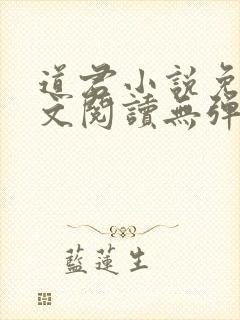 道君小說免
文閱讀無彈
藍蓮生